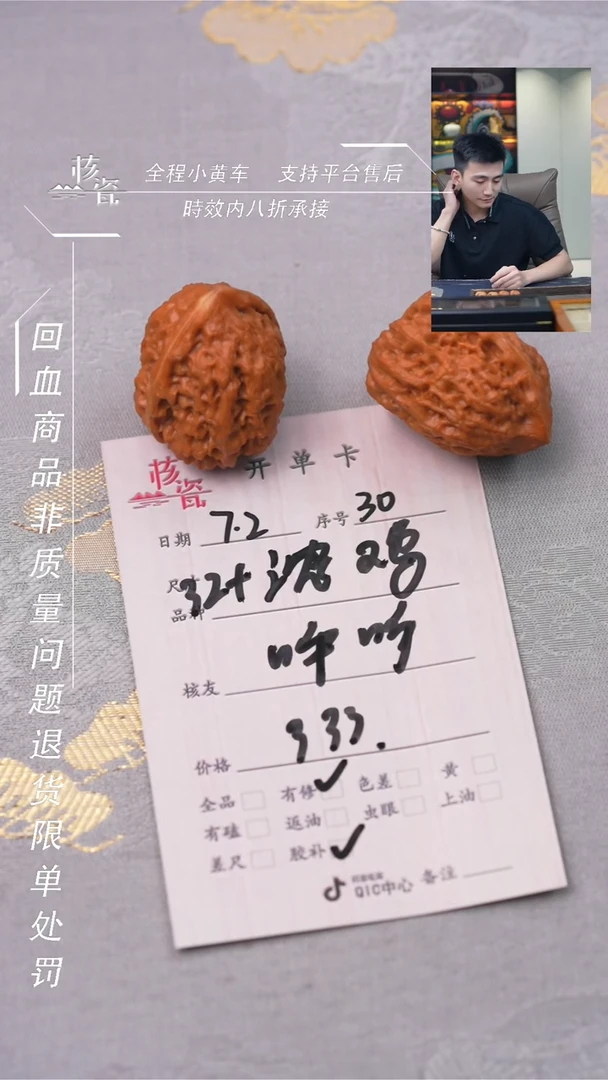 核瓷
全程小黄车 支持平台售后
時效内八折承接
回血商品非质量问题退货限单处罚
核瓷
开单卡
日期 7.2 序号 30
尺寸 32+
品种
核友
价格 333.
全品 有修 色差 黄
有磕 返油 虫眼 上油
差尺 胶补
抖音电商
QIC中心 备注